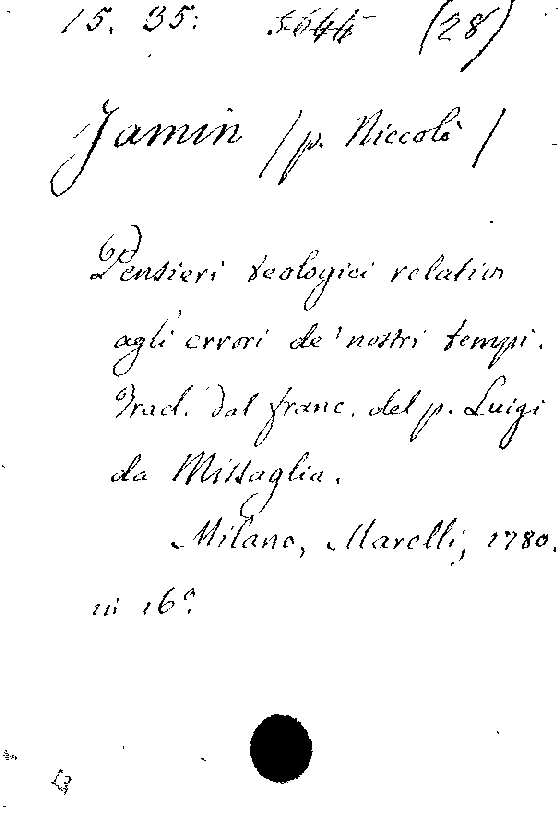 15. 35: 5644 (28)
Jamin /p. Niccolò/
Pensieri teologici relativi
agli errori de' nostri tempi.
Trad. dal franc. del p. Luigi
da Missaglia.
Milano, Marelli, 1780.
in 16º.